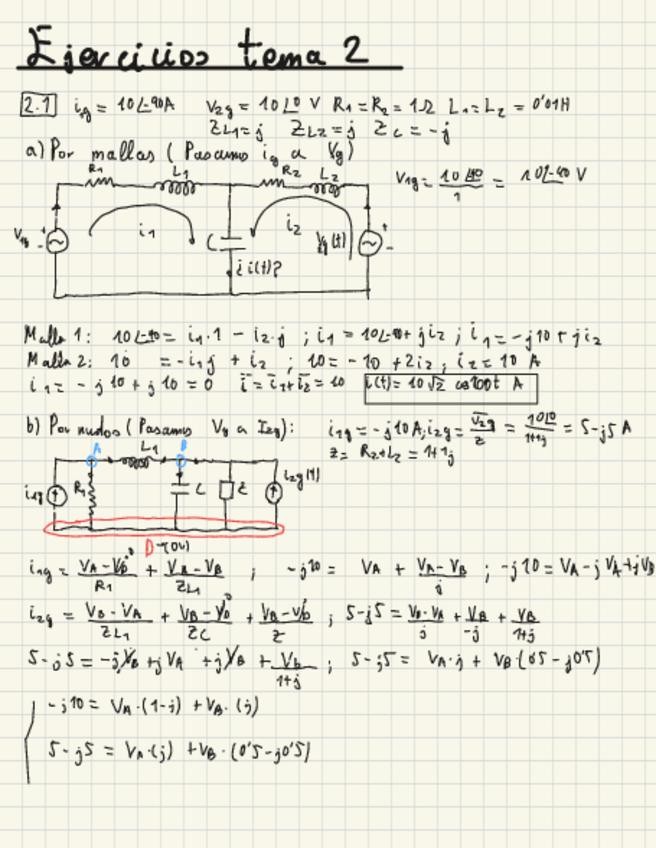 Ejercicios tema 2
2.1 ig = 10∠-90A V2g = 10∠0 V R1 = R2 = 1Ω L1 = L2 = 0'01H
ZL1 = j ZL2 = j Zc = -j
a) Por mallas (Pasamos ig a Vg)
V1g = 10∠-90 / 1 = 10∠-90 V
R1 L1 R2 L2
V1g i1 C i2 Vg(t)
¿i(t)?
Malla 1: 10∠-90 = i1·1 - i2·j ; i1 = 10∠-90 + ji2 ; i1 = -j10 + ji2
Malla 2: 10 = -i1j + i2 ; 10 = -10 + 2i2 ; i2 = 10 A
i1 = -j10 + j10 = 0 i = i1 + i2 = 10 i(t) = 10√2 cos100t A
b) Por nudos (Pasamos Vg a I2g):
i1g = -j10A; i2g = V2g / Z = 10∠0 / 1+1j = 5-j5 A
Z = R2+L2 = 1+1j
A L1 B
i1g R1 C Z i2g(t)
D-(0V)
i1g = VA-VD / R1 + VA-VB / ZL1 ; -j10 = VA + VA-VB / j ; -j10 = VA - jVA + jVB
i2g = VB-VA / ZL1 + VB-VD / ZC + VB-VD / Z ; 5-j5 = VB-VA / j + VB / -j + VB / 1+j
5-j5 = -jVB + jVA + jVB + Vb / 1+j ; 5-j5 = VA·j + VB·(0'5-j0'5)
-j10 = VA·(1-j) + VB·(j)
5-j5 = VA·(j) + VB·(0'5-j0'5)